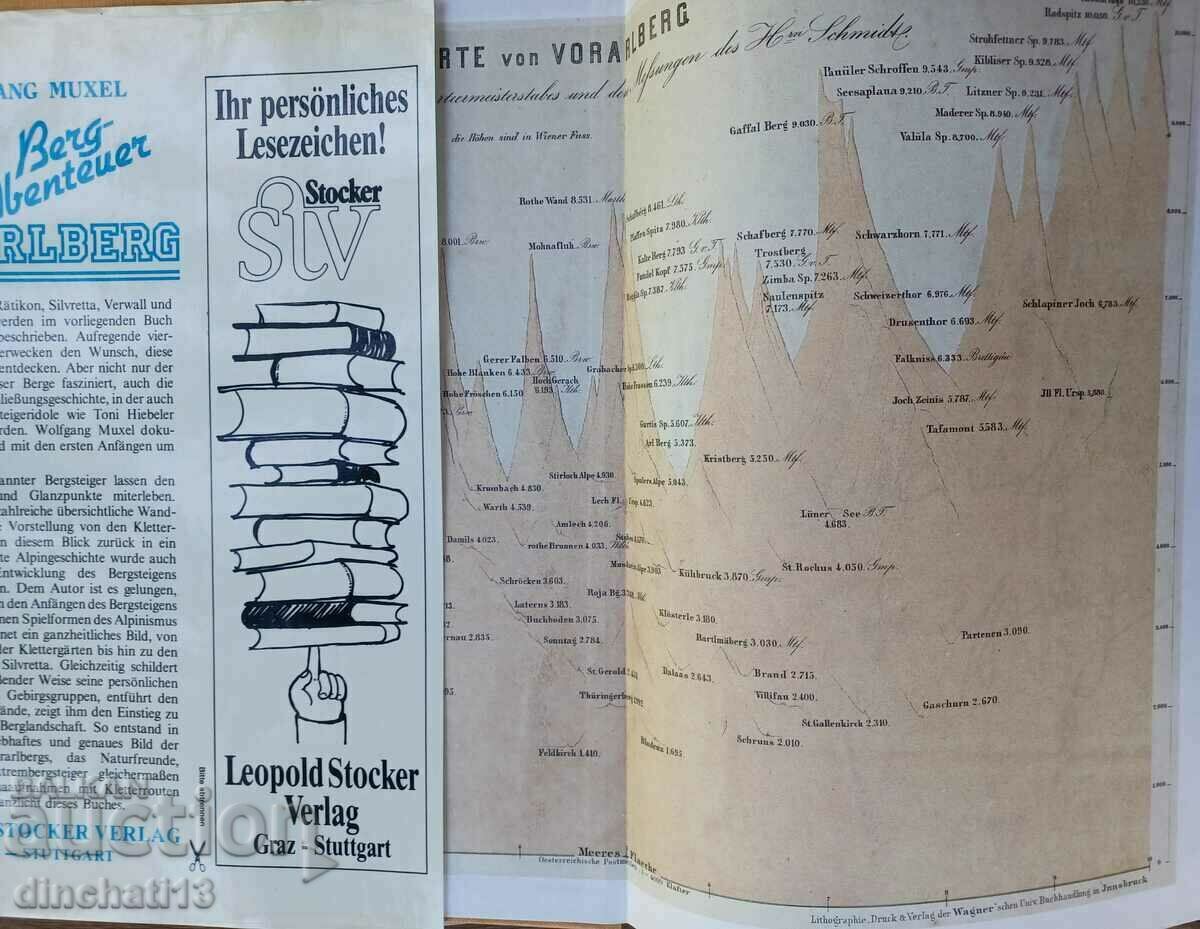 ANG MUXEL
Berg-
Abenteuer
ARLBERG
Rätikon, Silvretta, Verwall und
werden im vorliegenden Buch
beschrieben. Aufregende vier-
erwecken den Wunsch, diese
entdecken. Aber nicht nur der
ser Berge fasziniert, auch die
ließungsgeschichte, in der auch
steigeridole wie Toni Hiebeler
rden. Wolfgang Muxel doku-
d mit den ersten Anfängen um
annter Bergsteiger lassen den
und Glanzpunkte miterleben.
ahlreiche übersichtliche Wand-
e Vorstellung von den Kletter-
n diesem Blick zurück in ein
te Alpingeschichte wurde auch
Entwicklung des Bergsteigens
n. Dem Autor ist es gelungen,
n den Anfängen des Bergsteigens
nen Spielformen des Alpinismus
net ein ganzheitliches Bild, von
der Klettergärten bis hin zu den
Silvretta. Gleichzeitig schildert
ßender Weise seine persönlichen
Gebirgsgruppen, entführt den
ände, zeigt ihm den Einstieg zu
Berglandschaft. So entstand in
ebhaftes und genaues Bild der
rarlbergs, das Naturfreunde,
xtrembergsteiger gleichermaßen
aufnahmen mit Kletterrouten
änzlicht dieses Buches.
STOCKER VERLAG
– STUTTGART
Bitte abtrennen
Ihr persönliches
Lesezeichen!
Stocker
StV
Leopold Stocker
Verlag
Graz - Stuttgart
RTE von VORARLBERG
Messungen des Hrn Schmidt
artiermeisterstabes und der
die Höhen sind in Wiener Fuss.
Radspitz 10.050. G.v.T.
Strohfettner Sp. 9.783. Mtf.
Kibliser Sp. 9.328. Mtf.
Panüler Schroffen 9.543. Gmp.
Seesaplana 9,210. B.T.
Litzner Sp. 9.231. Mtf.
Maderer Sp. 8.940. Mtf.
Gaffal Berg 9,030. B.T.
Valüla Sp. 8,700. Mtf.
Rothe Wand 8.531.
8.001. Brw
Mohnafluh. Brw
Schafberg 8.461. Lth.
Pfaffen Spitz 7.980. Klth.
Kalte Berg 7.793 G.v.T.
Fundel Kopf 7.575. Gmp.
Sp. 7.387. Klth.
Schafberg 7.770. Mtf.
Trostberg
7.530. G.v.T.
Zimba Sp. 7.263. Mtf.
Naulenspitz
7.173. Mtf.
Schwarzhorn 7,771. Mtf.
Schweizerthor 6,976. Mtf.
Schlapiner Joch 6,783. Mtf.
Drusenthor 6.693. Mtf.
Falkniss 6.333. Brettigäu
Gerer Falben 6.510. Brw
Hohe Blanken 6.433. Brw
Hohe Fröschen 6.150
Hoch Gerach
6.193. Kth.
6.239. Klth.
Jll Fl. Ursp. 5,880.
Joch Zeinis 5.787. Mtf.
Tafamont 5583. Mtf.
Gurtis Sp. 5.607. Klth.
Arl Berg 5.373.
Kristberg 5.250. Mtf.
Spulers Alpe 5.043.
Stirloch Alpe 4.930.
Krumbach 4.830.
Lech Fl.
Ursp. 4.623.
Warth 4.539.
Lüner See B.T.
4.683.
Amlech 4.206.
Damils 4.023.
rothe Brunnen 4.033.
St. Rochus 4.050. Gmp.
Kühbruck 3.870. Gmp.
Schröcken 3.603.
Roja Bg.
Laterns 3.183.
Buchboden 3.075.
Klösterle 3.180.
Partenen 3.090.
Bartlmäberg 3.030. Mtf.
rnau 2.835.
Sonntag 2.784.
Brand 2.715.
Dalaas 2.643.
Gaschurn 2.670.
St. Gerold
Thüringerberg
Villifau 2.400.
St. Gallenkirch 2.310.
Schruns 2.010.
Bludenz 1.695.
Feldkirch 1.410.
Meeres - Flaeche
Oesterreichische Postmeilen
Klafter
Lithographie, Druck & Verlag der Wagner'schen Univ. Buchhandlung in Innsbruck.
BALKAN
auction
dinchati13